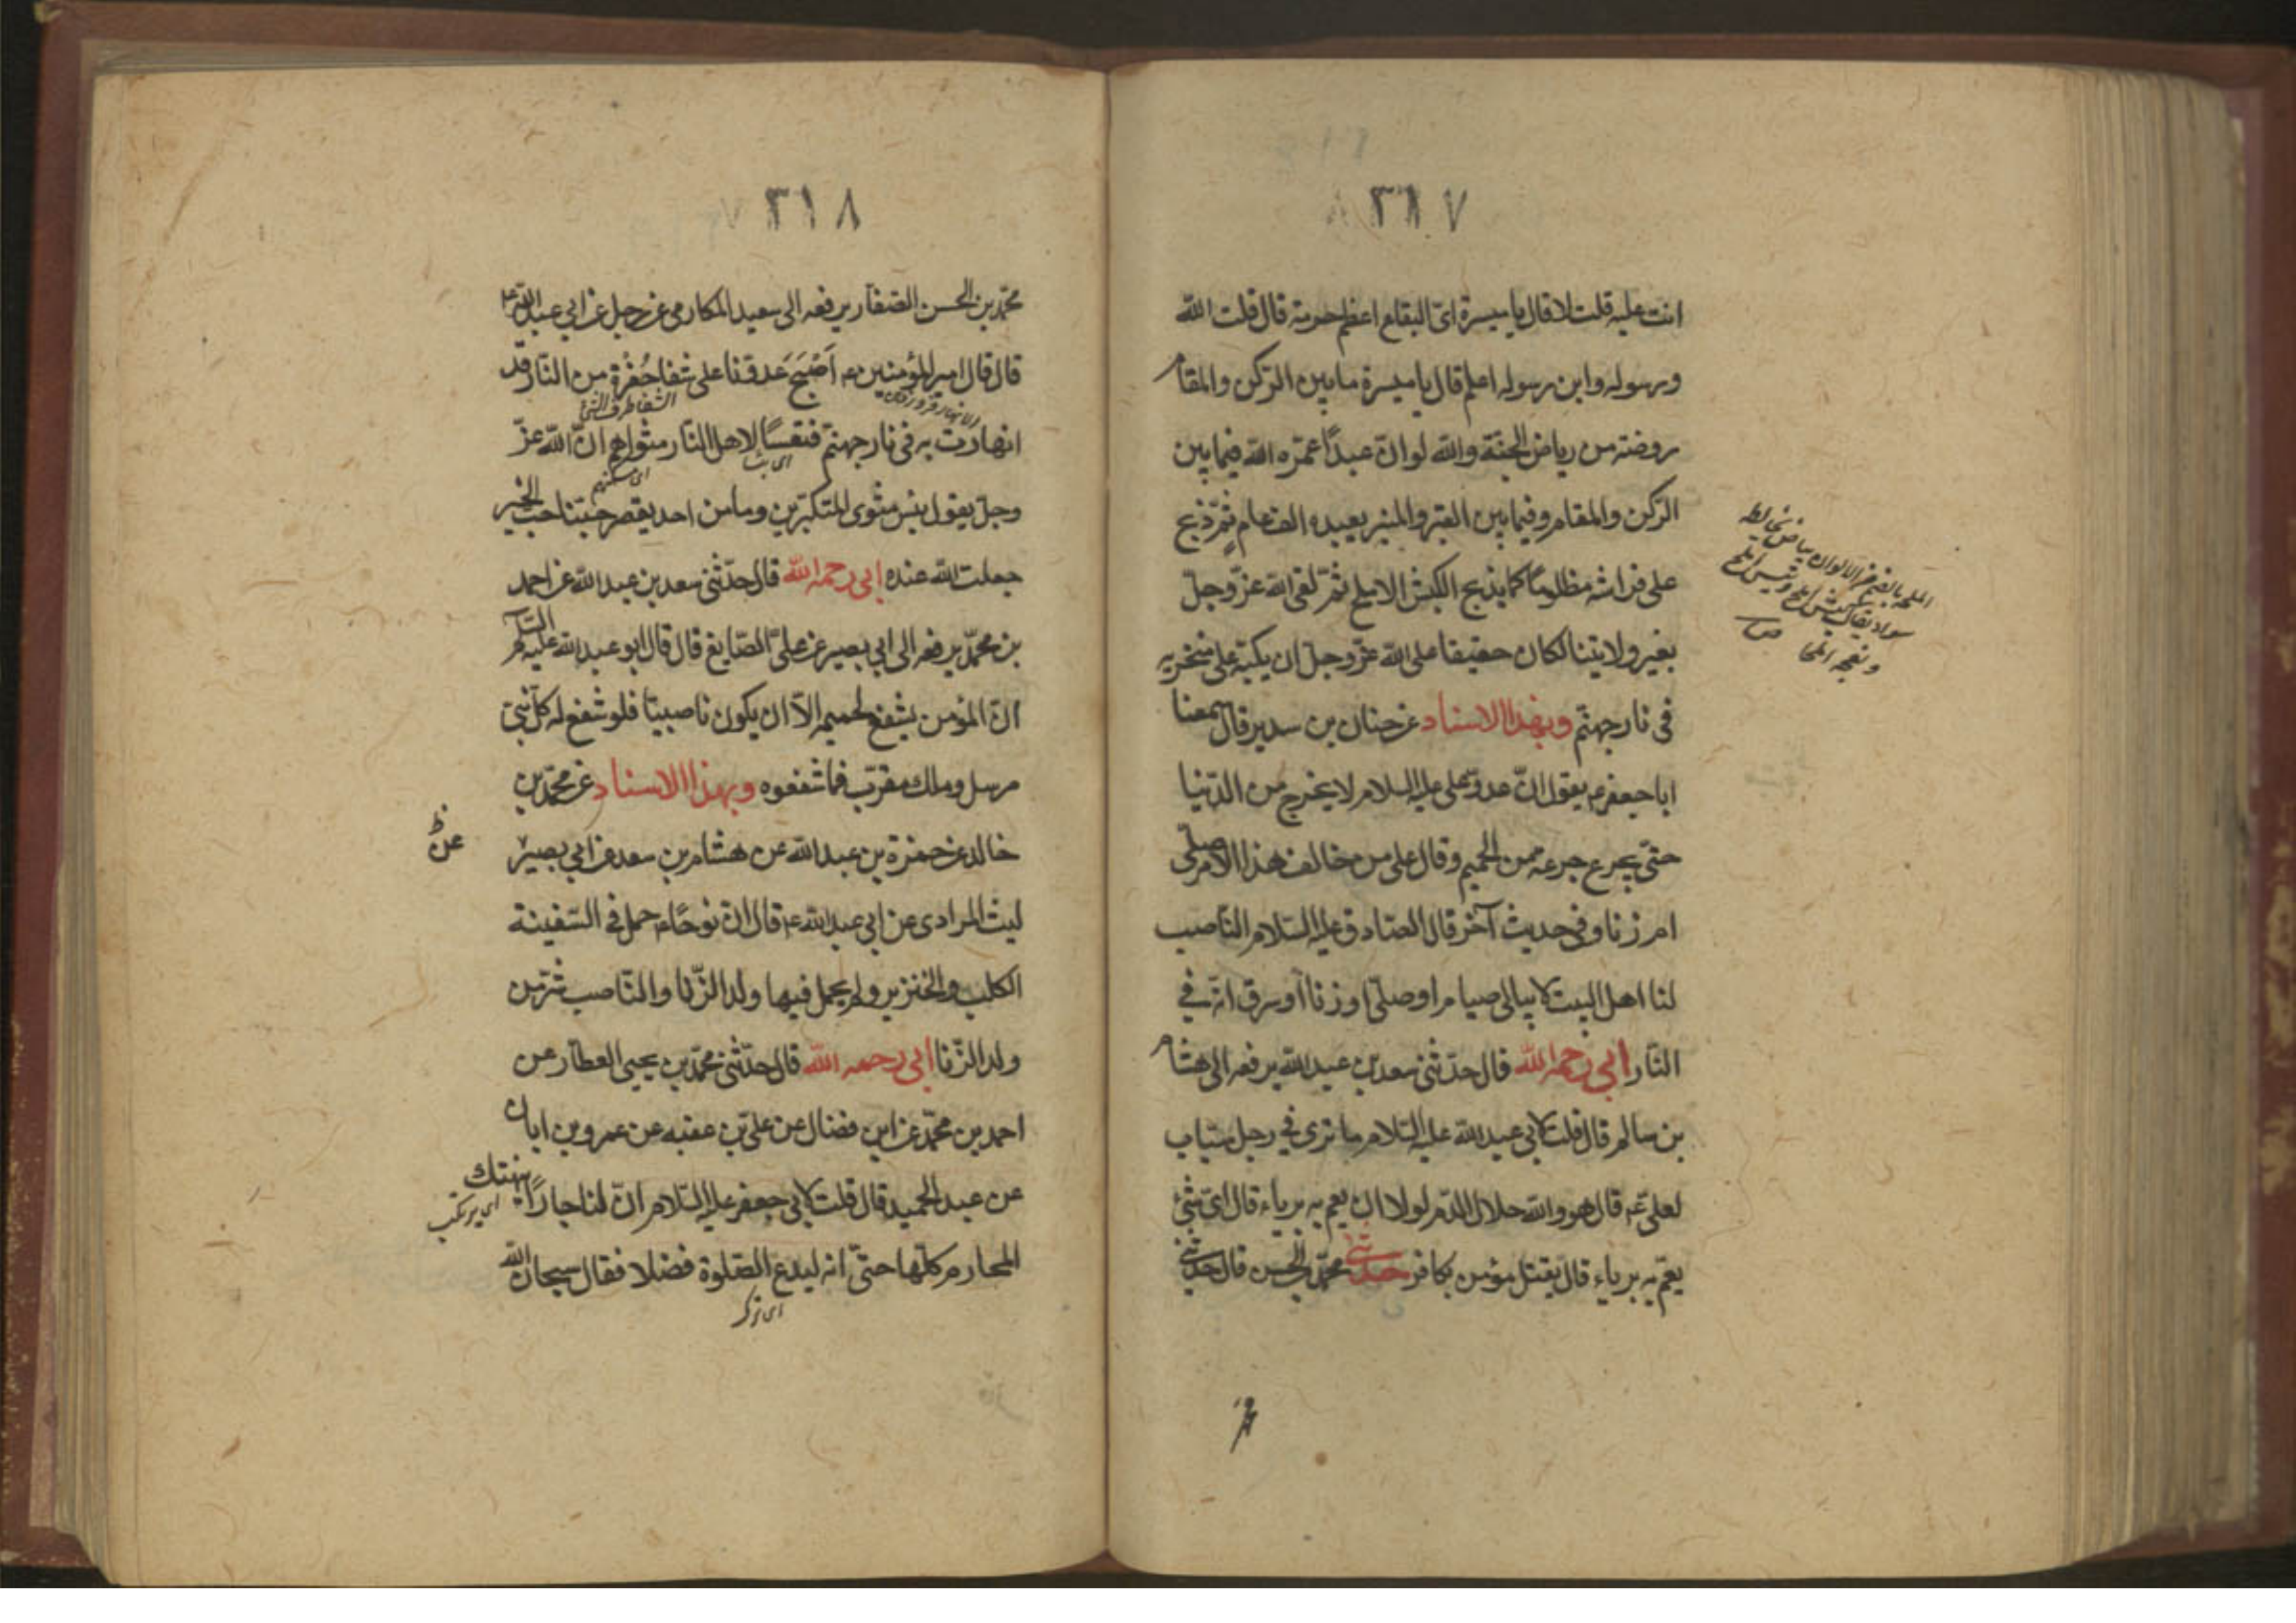 ٣١٧
انت عليه قلت لا قال يا ميسرة اىّ البقاع اعظم حرمة قال قلت الله
ورسوله وابن رسوله اعلم قال يا ميسرة ما بين الركن والمقام
روضة من رياض الجنّة والله لو انّ عبدًا عمّره الله فيما بين
الركن والمقام وفيما بين القبر والمنبر يعبده الف عام ثمّ ذبح
على فراشه مظلومًا كما يذبح الكبش الاملح ثمّ لقى الله عزّ وجلّ
بغير ولايتنا لكان حقيقا على الله عزّ وجلّ ان يكبّه على منخريه
فى نار جهنّم وبهذا الاسناد عن حنان بن سدير قال سمعنا
ابا جعفر ع يقول انّ عدوّ على عليه السلام لا يخرج من الدّنيا
حتّى يجرع جرعه من الحميم وقال على من خالف هذا الامر صلّى
ام زنا وفى حديث آخر قال الصّادق عليه السّلام النّاصب
لنا اهل البيت لا يبالى صيام او صلّى او زنا او سرق انّه فى
النّار ابى رحمه الله قال حدّثنى سعد بن عبد الله يرفعه الى هشام
بن سالم قال قلت لابى عبد الله عليه السّلام ما ترى فى رجل سبّاب
لعلىّ ع قال هو والله حلال الدّم لولا ان يعم به برياء قال اىّ شئ
يعمّ به برياء قال يقتل مؤمن بكافر حدثنى محمّد بن الحسن قال حدثنى
الملحة بالضم من الالوان بياض يخالطه
سواد يقال كبش املح وتيس املح
ونعجة ملحا ص
محمّ
٣١٨
محمّد بن الحسن الصّفّار يرفعه الى سعيد المكارمى عن رجل عن ابى عبد الله ع
قال قال امير المؤمنين ع اَصْبَحَ عدوّنا على شفا حُفْرَةٍ من النّار قد
الشفا طرف الشئ
انهارت به فى نار جهنّم فتعسًا لاهل النّار مثواهم انّ الله عزّ
اى مسكنهم
وجلّ يقول بئس مثوى المتكبّرين وما من احد يقصر حبّنا احب الخير
جعلت الله عنده ابى رحمه الله قال حدّثنى سعد بن عبد الله عن احمد
بن محمّد يرفعه الى ابى بصير عن علىّ الصّايغ قال قال ابو عبد الله عليه السّلام
انّ المؤمن يشفع لحميمه الّا ان يكون ناصبيّا فلو شفع له كلّ نبىّ
مرسل وملك مقرّب فما شفعوه وبهذا الاسناد عن محمّد بن
خالد عن حمزة بن عبد الله عن هشام بن سعد عن ابى بصير
عن ظ
ليث المرادى عن ابى عبد الله ع قال انّ نوحًا ع حمل فى السّفينة
الكلب والخنزير ولم يحمل فيها ولد الزّنا والنّاصب شرّ من
ولد الزّنا ابى رحمه الله قال حدّثنى محمّد بن يحيى العطّار عن
احمد بن محمّد عن ابن فضال عن علىّ بن عقبه عن عمرو بن ابان
عن عبد الحميد قال قلت لابى جعفر عليه السّلام انّ لنا جارًا ينتهك
اى يرتكب
المحارم كلّها حتّى انه ليدع الصّلوة فضلا فقال سبحان الله
اى ترك